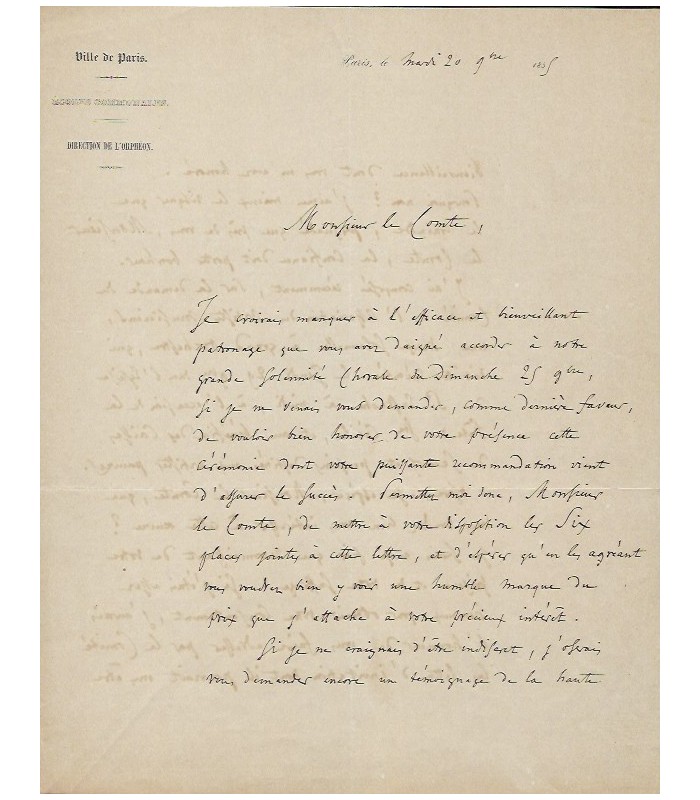 Ville de Paris.
Paris, le mardi 20 9bre 1855
ÉCOLES COMMUNALES.
DIRECTION DE L'ORPHÉON.
Monsieur le Comte,
Je croirais manquer à l'efficace et bienveillant
patronage que vous avez daigné accorder à notre
grande Solennité Chorale du Dimanche 25 9bre,
si je ne venais vous demander, comme dernière faveur,
de vouloir bien honorer de votre présence cette
cérémonie dont votre puissante recommandation vient
d'assurer le succès. Permettez moi donc, Monsieur
le Comte, de mettre à votre disposition les Six
places jointes à cette lettre, et d'espérer qu'en les agréant
vous voudrez bien y voir une humble marque du
prix que j'attache à votre précieux intérêt.
Si je ne craignais d'être indiscret, j'oserais
vous demander encore un témoignage de la haute